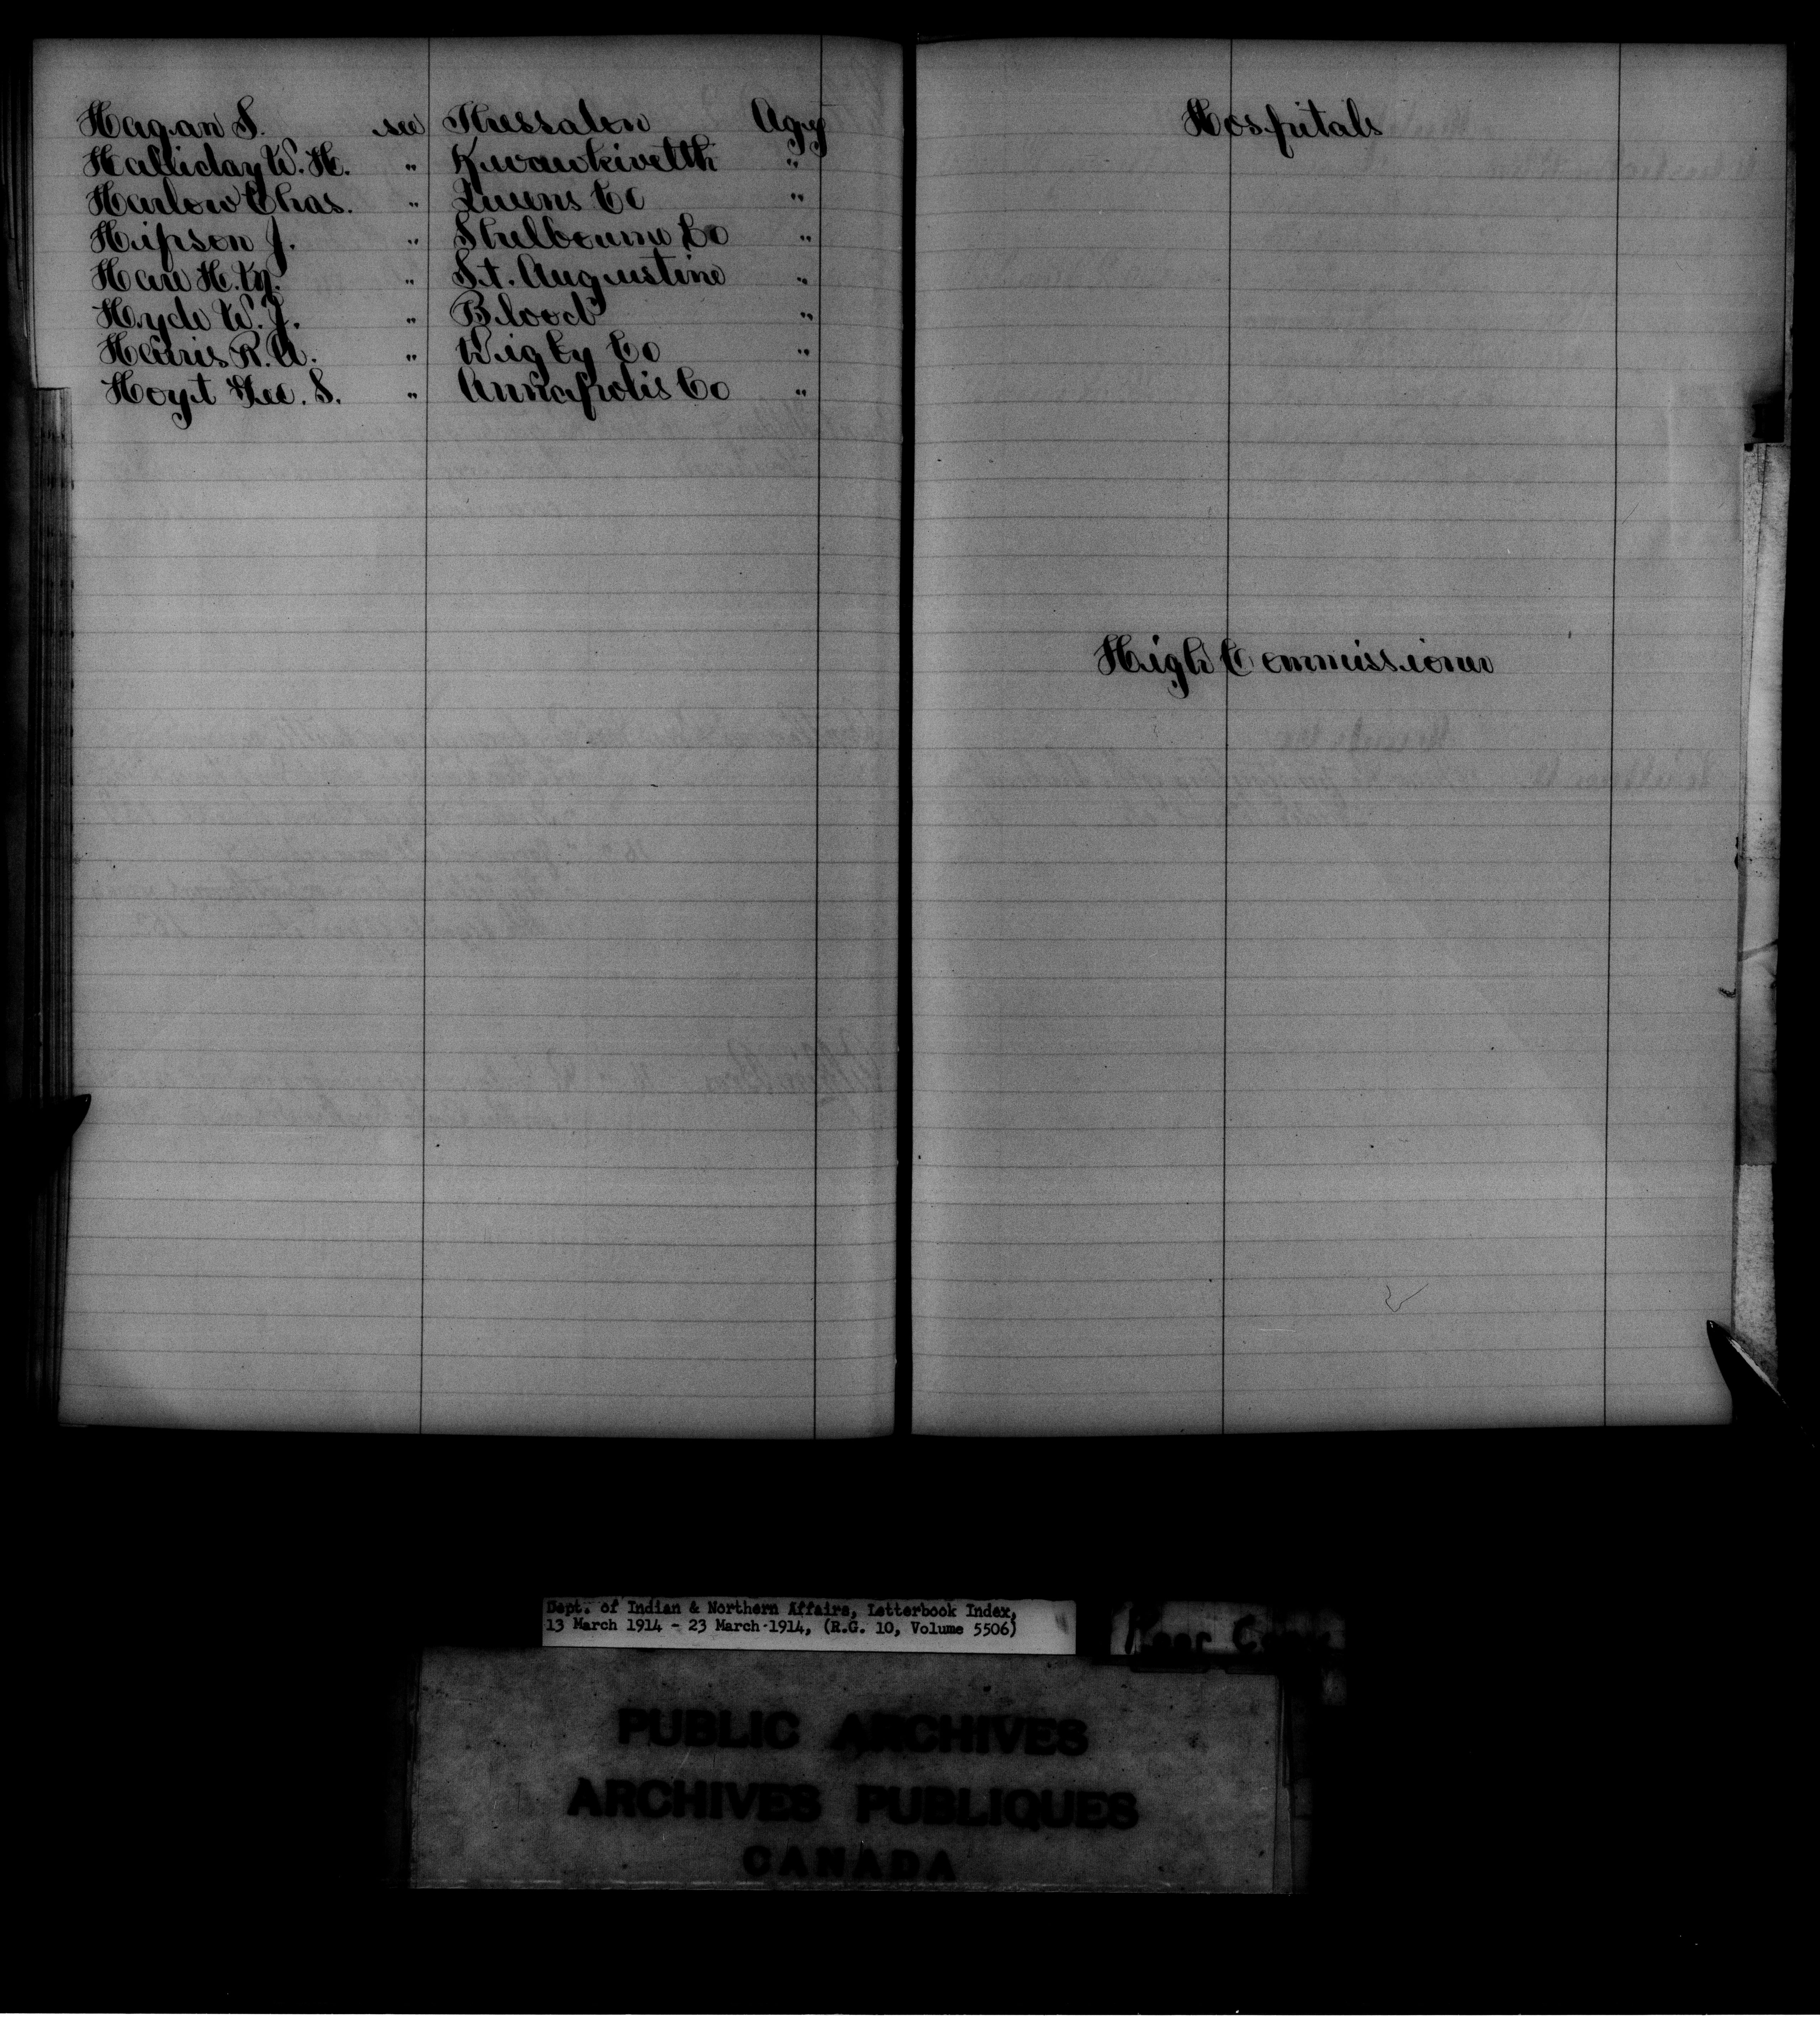 Hagan S. see Thessalon Agcy
Halliday W. H. " Kwawkewlth "
Harlow Chas. " Queens Co "
Hipson J. " Shelbourne Co "
Hare H. " St. Augustine "
Hyde W. J. " Blood "
Harris R. A. " Digby Co "
Hoyt Geo. S. " Annapolis Co "
Hospitals
High Commissioner
Dept. of Indian & Northern Affairs, Letterbook Index,
13 March 1914 - 23 March 1914, (R.G. 10, Volume 5506)
PUBLIC ARCHIVES
ARCHIVES PUBLIQUES
CANADA